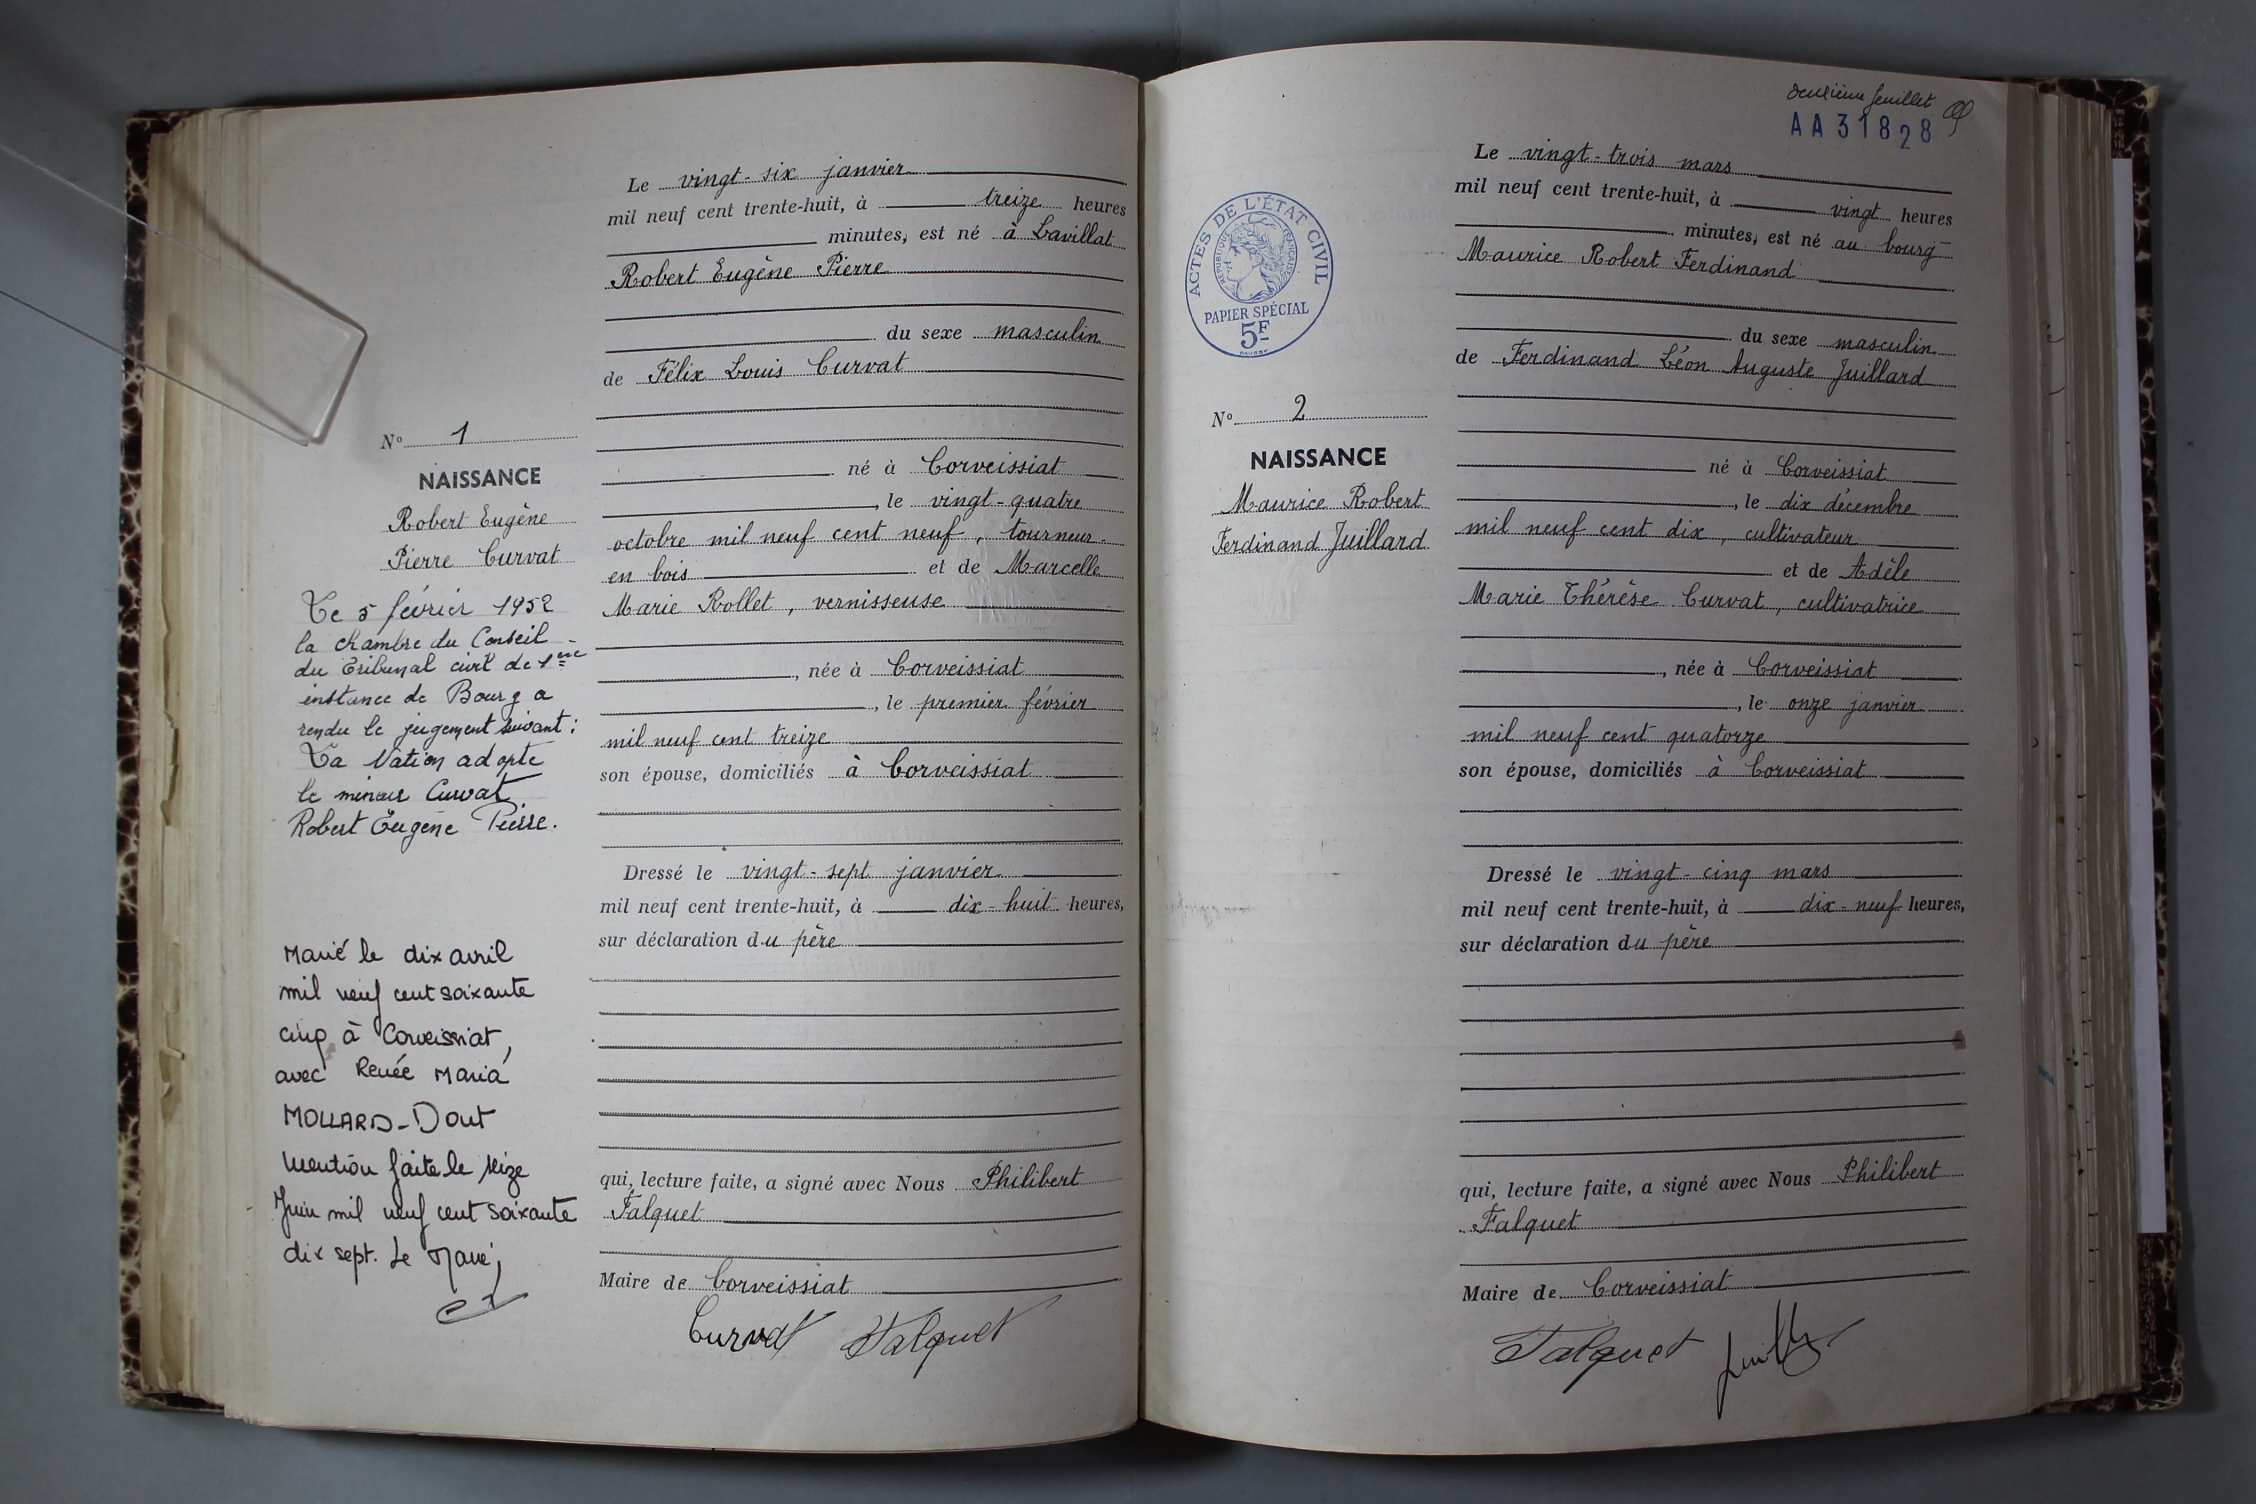 Le vingt-six janvier
mil neuf cent trente-huit, à treize heures
minutes, est né à Lavillat
Robert Eugène Pierre
du sexe masculin
de Félix Louis Curvat
né à Corveissiat
, le vingt-quatre
octobre mil neuf cent neuf, tourneur
en bois et de Marcelle
Marie Rollet, vernisseuse
, née à Corveissiat
, le premier février
mil neuf cent treize
son épouse, domiciliés à Corveissiat
Dressé le vingt-sept janvier
mil neuf cent trente-huit, à dix-huit heures,
sur déclaration du père
qui, lecture faite, a signé avec Nous Philibert
Falquet
Maire de Corveissiat
Curvat Falquet
No 1
NAISSANCE
Robert Eugène
Pierre Curvat
Le 5 février 1952
la chambre du Conseil
du Tribunal civil de 1ère
instance de Bourg a
rendu le jugement suivant :
La Nation adopte
le mineur Curvat
Robert Eugène Pierre.
Marié le dix avril
mil neuf cent soixante
cinq à Corveissiat,
avec Renée Maria
MOLLARD - Dont
mention faite le seize
Juin mil neuf cent soixante
dix sept. Le Maire,
deuxième feuillet
AA31828
ACTES DE L'ÉTAT CIVIL
RÉPUBLIQUE FRANÇAISE
PAPIER SPÉCIAL
5F
No 2
NAISSANCE
Maurice Robert
Ferdinand Juillard
Le vingt-trois mars
mil neuf cent trente-huit, à vingt heures
minutes, est né au bourg
Maurice Robert Ferdinand
du sexe masculin
de Ferdinand Léon Auguste Juillard
né à Corveissiat
, le dix décembre
mil neuf cent dix, cultivateur
et de Adèle
Marie Thérèse Curvat, cultivatrice
, née à Corveissiat
, le onze janvier
mil neuf cent quatorze
son épouse, domiciliés à Corveissiat
Dressé le vingt-cinq mars
mil neuf cent trente-huit, à dix-neuf heures,
sur déclaration du père
qui, lecture faite, a signé avec Nous Philibert
Falquet
Maire de Corveissiat
Falquet